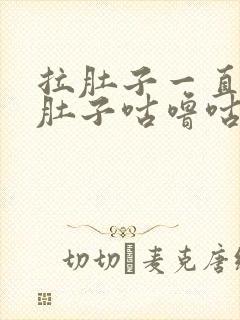 拉肚子一直
肚子咕噜咕
切切 麦克唐纳